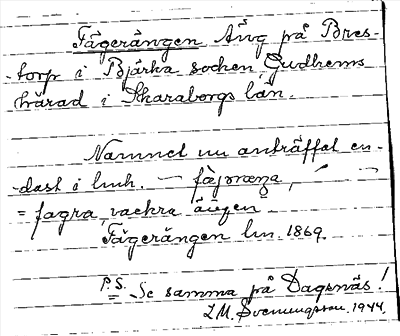 Fägerängen Äng på Bres-
torp i Bjärka socken, Gudhems
härad i Skaraborgs län.
Namnet nu anträffat en-
dast i lmh. —
= fagra, vackra ängen
Fägerängen lm. 1869.
P.S. Se samma på Dagsnäs!
L.M. Svenungsson. 1944.